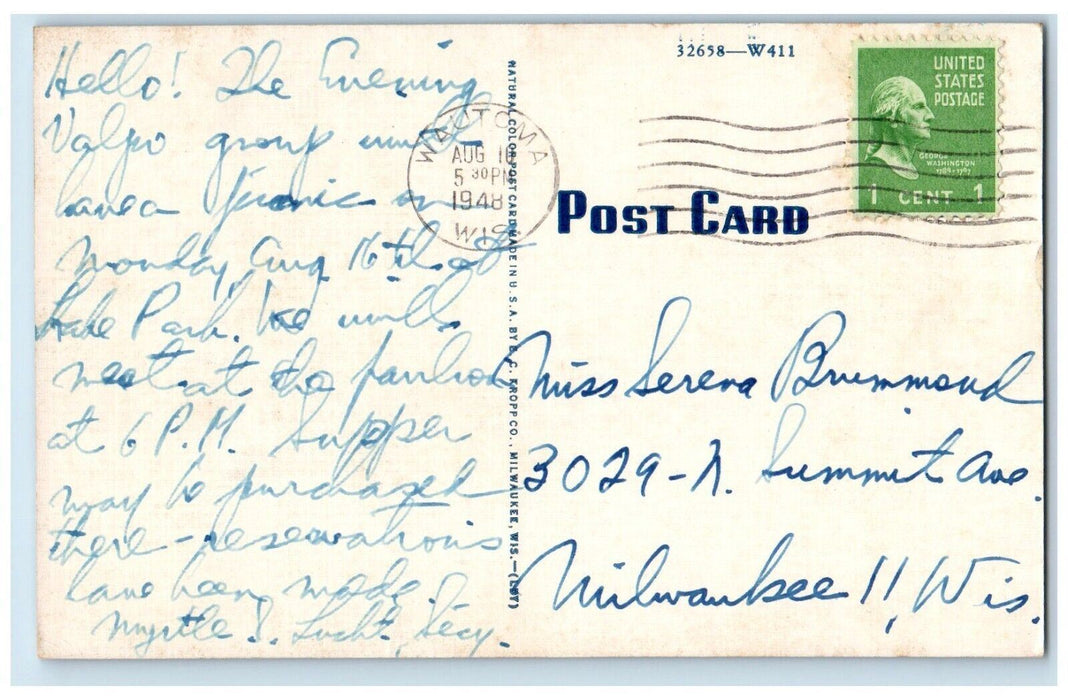 Hello! The Evening
Valpo group will
have a picnic on
Monday, Aug 16th at
Lake Park. We will
meet at the pavilion
at 6 P.M. Supper
may be purchased
there - reservations
have been made.
Myrtle Secy.
NATURAL COLOR POST CARD MADE IN U.S.A. BY E. C. KROPP CO., MILWAUKEE, WIS.
WAUTOMA
AUG
5 30 PM
1948
WIS
32658—W411
POST CARD
UNITED
STATES
POSTAGE
GEORGE
WASHINGTON
1789-1797
1 CENT 1
Miss Serena Brummond
3029-N. Summit Ave.
Milwaukee 11, Wis.